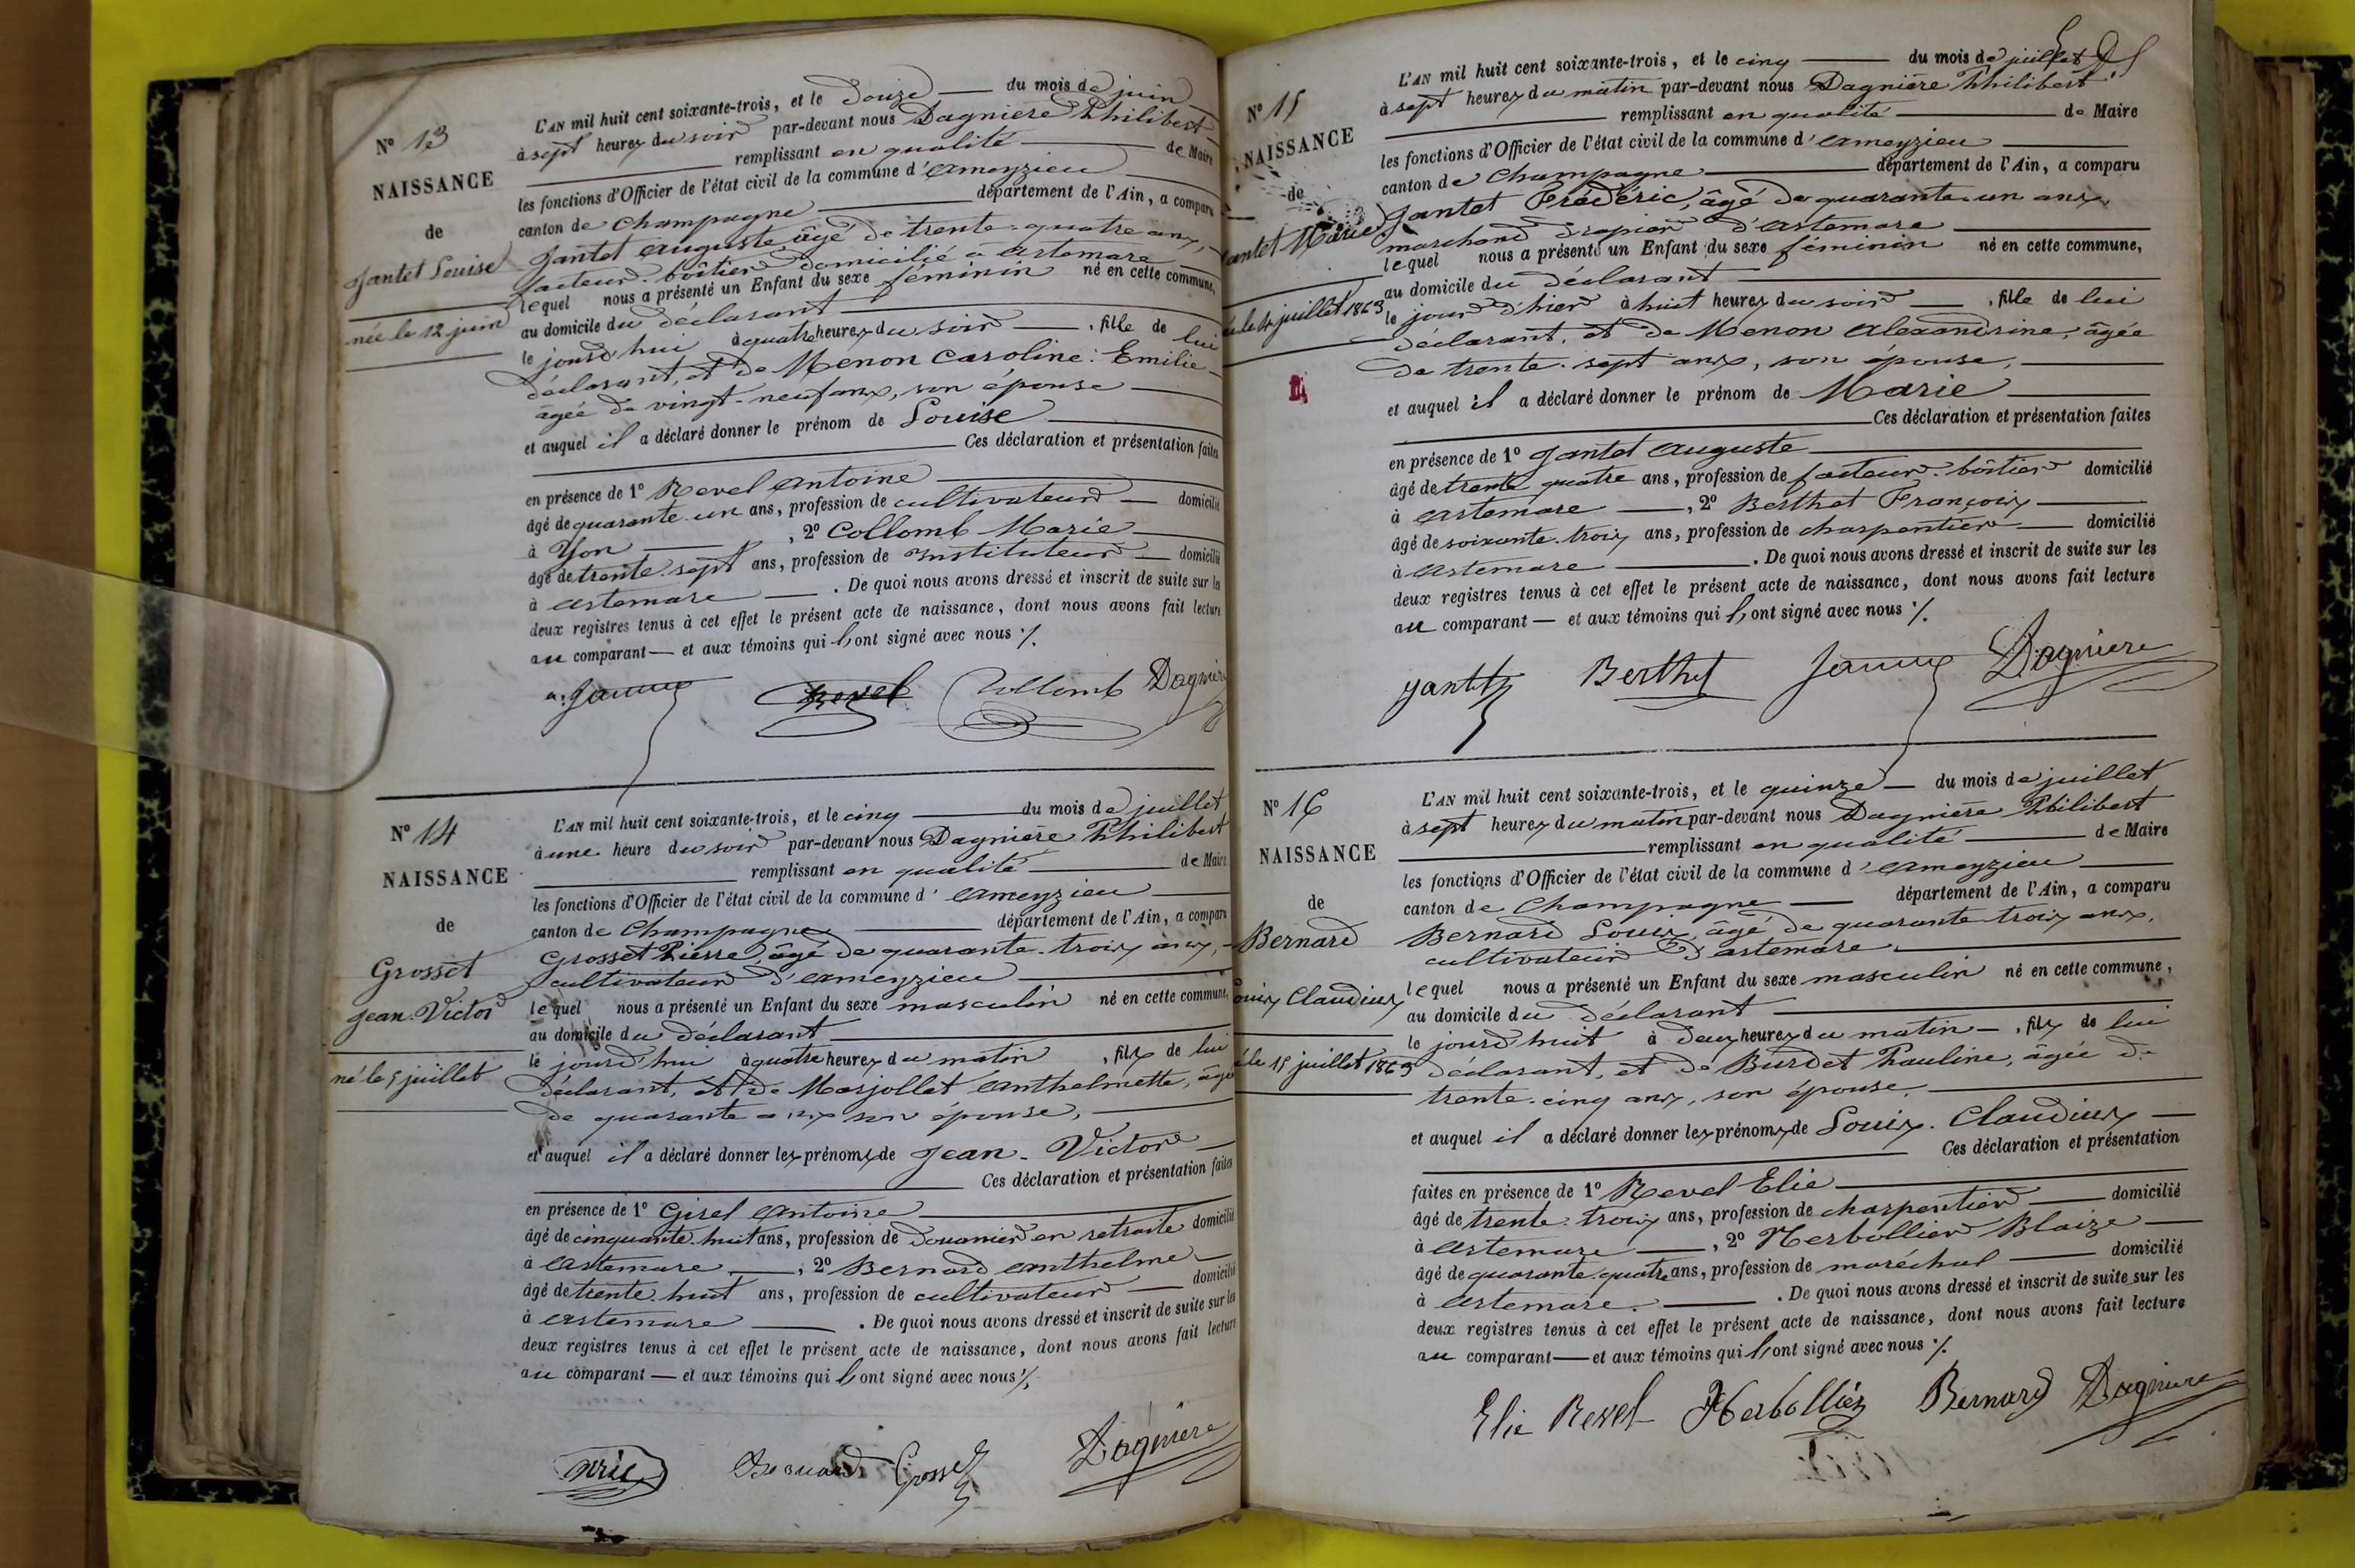 Nº 13
NAISSANCE
de
Jantet Louise
née le 12 juin
L'AN mil huit cent soixante-trois, et le douze — du mois de juin
à sept heures du soir par-devant nous Dagnière Philibert
remplissant en qualité — de Maire
les fonctions d'Officier de l'état civil de la commune d'Ameyzieu
canton de Champagne — département de l'Ain, a comparu
Jantet Auguste, âgé de trente-quatre ans,
facteur-boîtier domicilié à Artemare
lequel nous a présenté un Enfant du sexe féminin né en cette commune,
au domicile du déclarant
le jourd'hui à quatre heures du soir — , fille de lui
déclarant, et de Menon Caroline-Emilie
âgée de vingt-neuf ans, son épouse
et auquel il a déclaré donner le prénom de Louise
Ces déclaration et présentation faites
en présence de 1º Revel Antoine
âgé de quarante-un ans, profession de cultivateur — domicilié
à Yon — , 2º Collomb Marie
âgé de trente-sept ans, profession de Instituteur — domicilié
à Artemare — . De quoi nous avons dressé et inscrit de suite sur les
deux registres tenus à cet effet le présent acte de naissance, dont nous avons fait lecture
au comparant — et aux témoins qui l'ont signé avec nous ·/.
Revel Collomb Dagnière
Nº 14
NAISSANCE
de
Grosset
Jean-Victor
né le 5 juillet
L'AN mil huit cent soixante-trois, et le cinq — du mois de juillet
à une heure du soir par-devant nous Dagnière Philibert
remplissant en qualité — de Maire
les fonctions d'Officier de l'état civil de la commune d'Ameyzieu
canton de Champagne — département de l'Ain, a comparu
Grosset Pierre, âgé de quarante-trois ans,
cultivateur d'Ameyzieu
lequel nous a présenté un Enfant du sexe masculin né en cette commune,
au domicile du déclarant
le jourd'hui à quatre heures du matin , fils de lui
déclarant, et de Marjollet Anthelmette, âgée
de quarante ans son épouse,
et auquel il a déclaré donner les prénoms de Jean-Victor
Ces déclaration et présentation faites
en présence de 1º Girel Antoine
âgé de cinquante-huit ans, profession de douanier en retraite domicilié
à Artemare — , 2º Bernard Anthelme
âgé de trente-huit ans, profession de cultivateur — domicilié
à Artemare — . De quoi nous avons dressé et inscrit de suite sur les
deux registres tenus à cet effet le présent acte de naissance, dont nous avons fait lecture
au comparant — et aux témoins qui l'ont signé avec nous ·/.
Grosset Dagnière
Nº 15
NAISSANCE
de
Jantet Marie
née le 4 juillet 1863
L'AN mil huit cent soixante-trois, et le cinq — du mois de juillet
à sept heures du matin par-devant nous Dagnière Philibert
remplissant en qualité — de Maire
les fonctions d'Officier de l'état civil de la commune d'Ameyzieu
canton de Champagne — département de l'Ain, a comparu
Jantet Frédéric, âgé de quarante-un ans,
marchand drapier d'Artemare
lequel nous a présenté un Enfant du sexe féminin né en cette commune,
au domicile du déclarant
le jour d'hier à huit heures du soir — , fille de lui
déclarant, et de Menon Alexandrine, âgée
de trente-sept ans, son épouse,
et auquel il a déclaré donner le prénom de Marie
Ces déclaration et présentation faites
en présence de 1º Jantet Auguste
âgé de trente-quatre ans, profession de facteur-boîtier domicilié
à Artemare — , 2º Berthet François
âgé de soixante-trois ans, profession de charpentier — domicilié
à Artemare — . De quoi nous avons dressé et inscrit de suite sur les
deux registres tenus à cet effet le présent acte de naissance, dont nous avons fait lecture
au comparant — et aux témoins qui l'ont signé avec nous ·/.
Jantet Berthet Dagnière
Nº 16
NAISSANCE
de
Bernard
Louis Claudius
né le 15 juillet 1863
L'AN mil huit cent soixante-trois, et le quinze — du mois de juillet
à sept heures du matin par-devant nous Dagnière Philibert
remplissant en qualité — de Maire
les fonctions d'Officier de l'état civil de la commune d'Ameyzieu
canton de Champagne — département de l'Ain, a comparu
Bernard Louis, âgé de quarante-trois ans,
cultivateur d'Artemare
lequel nous a présenté un Enfant du sexe masculin né en cette commune,
au domicile du déclarant
le jourd'huit à deux heures du matin — , fils de lui
déclarant, et de Burdet Pauline, âgée de
trente-cinq ans, son épouse
et auquel il a déclaré donner les prénoms de Louis-Claudius —
Ces déclaration et présentation
faites en présence de 1º Revel Elie
âgé de trente-trois ans, profession de charpentier — domicilié
à Artemare — , 2º Herbollier Blaize —
âgé de quarante-quatre ans, profession de maréchal — domicilié
à Artemare. — . De quoi nous avons dressé et inscrit de suite sur les
deux registres tenus à cet effet le présent acte de naissance, dont nous avons fait lecture
au comparant — et aux témoins qui l'ont signé avec nous ·/.
Elie Revel Herbollier Bernard Dagnière